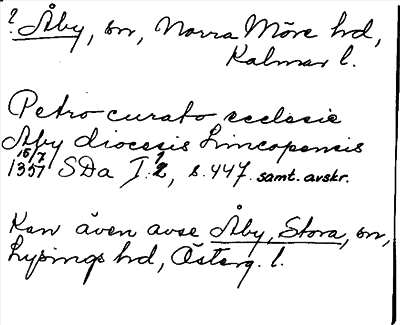 ? Åby, sn, Norra Möre hd,
Kalmar l.
Petro curato ecclesie
Aby diocesis Lincopensis
15/7
1357 SDa I:2, s. 447. samt. avskr.
Kan även avse Åby, Stora, sn,
Lysings hd, Österg. l.